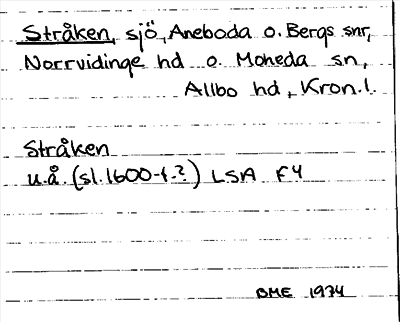 Stråken, sjö, Aneboda o. Bergs snr,
Norrvidinge hd o. Moheda sn,
Allbo hd, Kron.l.
Stråken
u.å. (sl. 1600-t.?) LSA F4
BME 1974